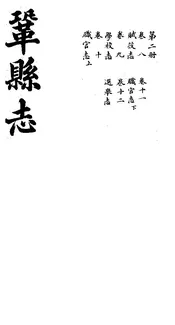 鞏縣志
第二冊
卷八
賦役志
卷九
學校志
卷十
職官志上
卷十一
職官志下
卷十二
選舉志